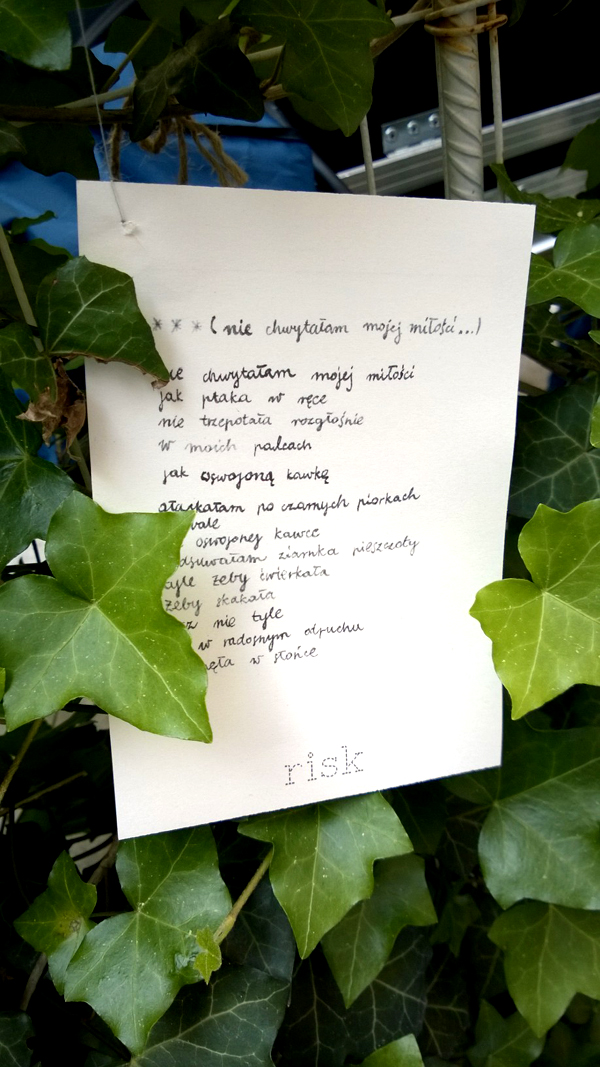 * * * (nie chwytałam mojej miłości...)
chwytałam mojej miłości
jak ptaka w ręce
nie trzepotała rozgłośnie
w moich palcach
jak oswojoną kawkę
głaskałam po czarnych piórkach
oswojonej kawce
ziarnka pieszczoty
tyle żeby ćwierkała
żeby skakała
nie tyle
w radosnym odruchu
w słońce
risk